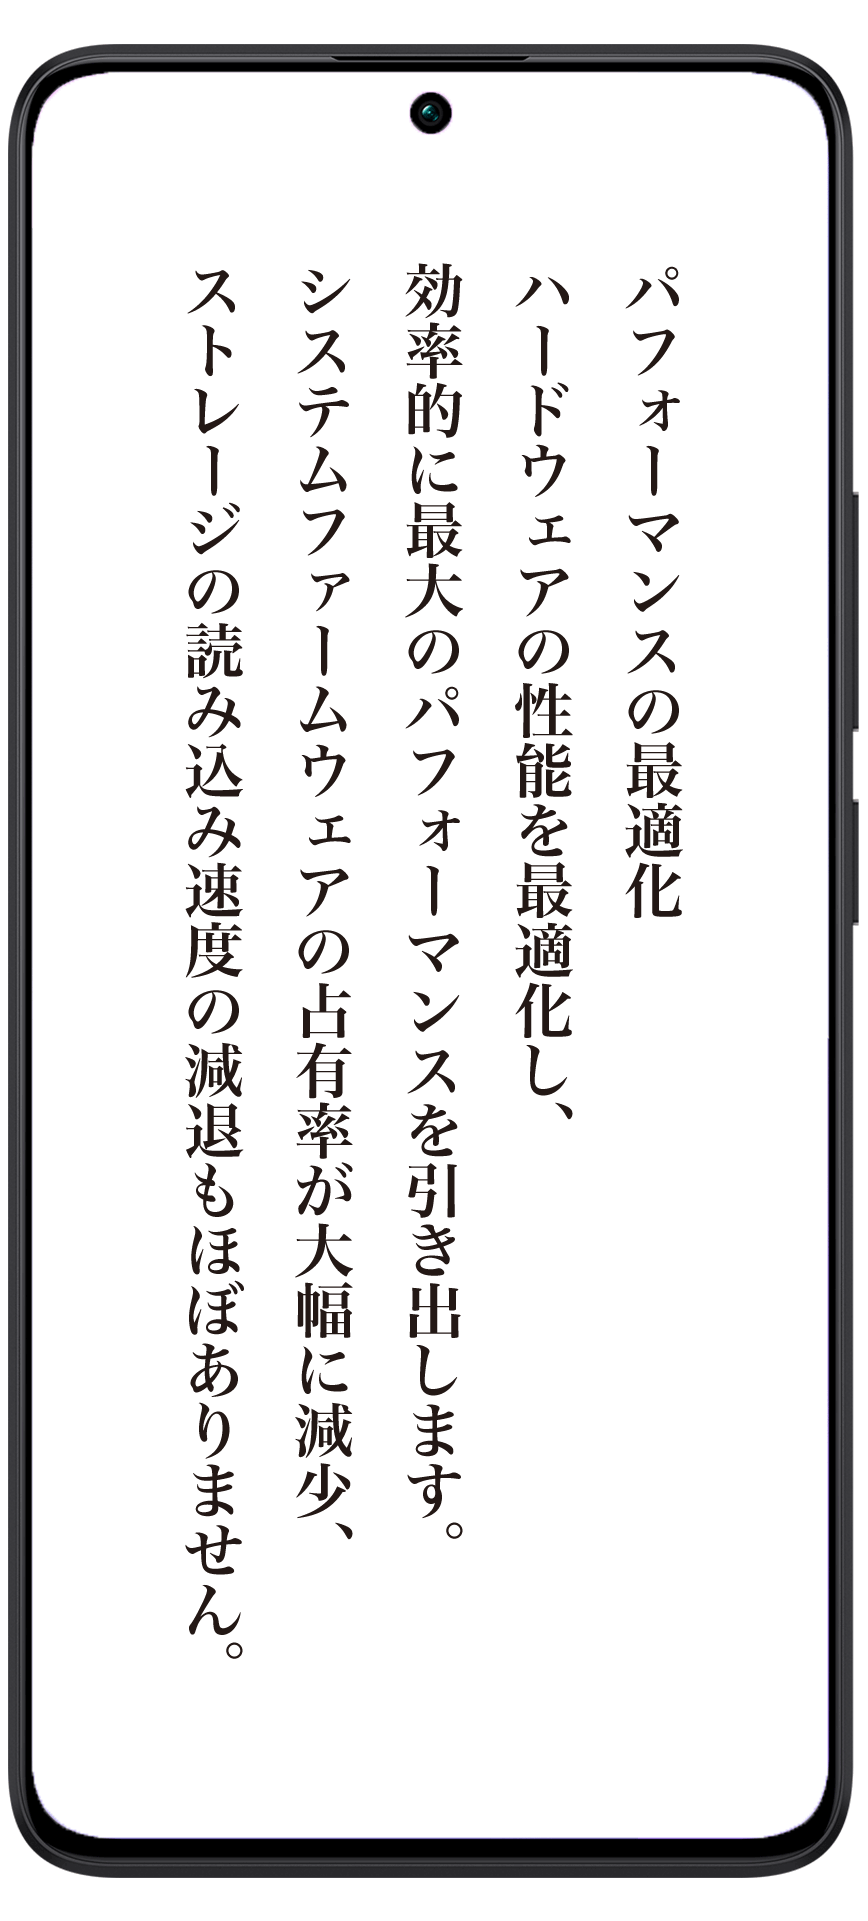 パフォーマンスの最適化
ハードウェアの性能を最適化し、
効率的に最大のパフォーマンスを引き出します。
システムファームウェアの占有率が大幅に減少、
ストレージの読み込み速度の減退もほぼありません。